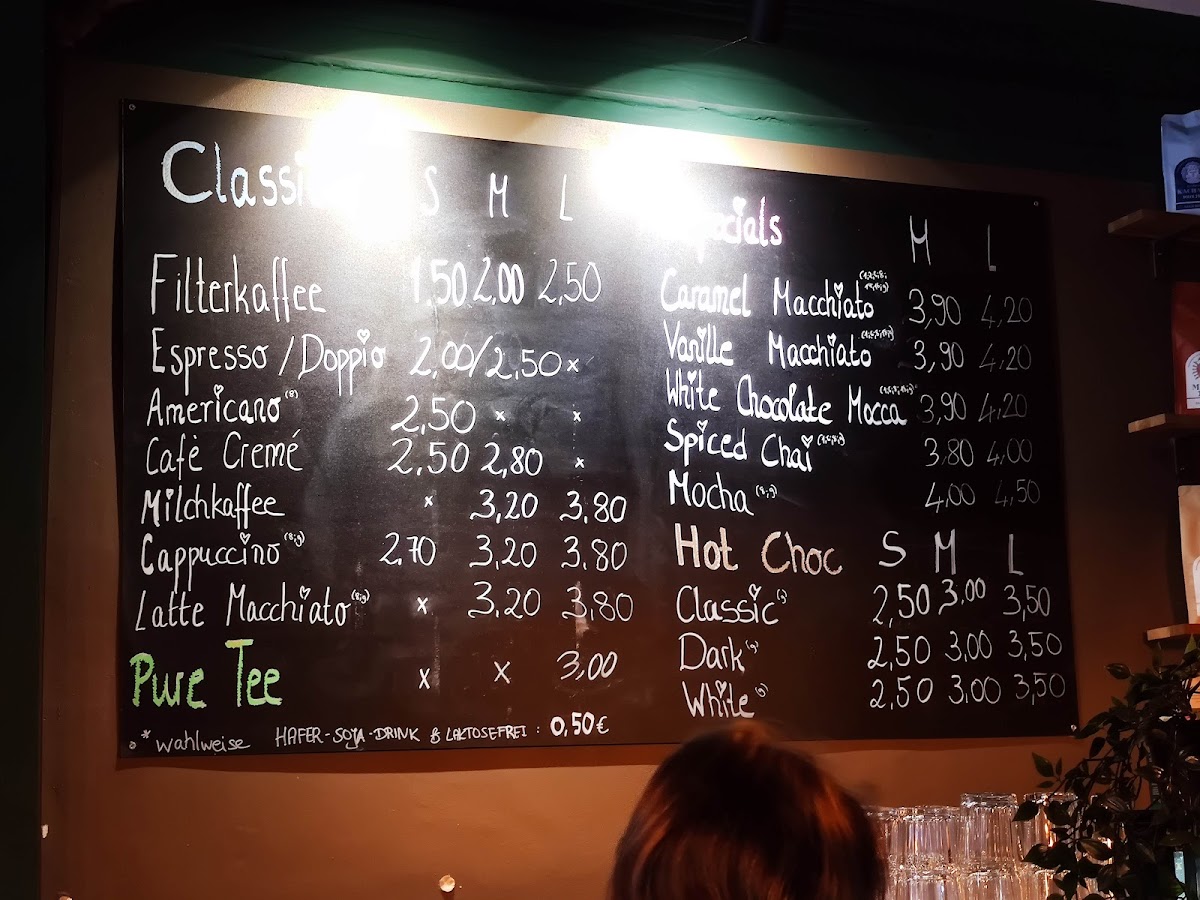 S M L
Filterkaffee 1,50 2,00 2,50
Espresso / Doppio 2,00/2,50 x
Americano 2,50 x x
Cafè Cremé 2,50 2,80 x
Milchkaffee x 3,20 3,80
Cappuccino 2,70 3,20 3,80
Latte Macchiato x 3,20 3,80
Pure Tee x x 3,00
* wahlweise HAFER-SOJA-DRINK & LAKTOSEFREI : 0,50€
Specials M L
Caramel Macchiato 3,90 4,20
Vanille Macchiato 3,90 4,20
White Chocolate Mocca 3,90 4,20
Spiced Chai 3,80 4,00
Mocha 4,00 4,50
Hot Choc S M L
Classic 2,50 3,00 3,50
Dark 2,50 3,00 3,50
White 2,50 3,00 3,50